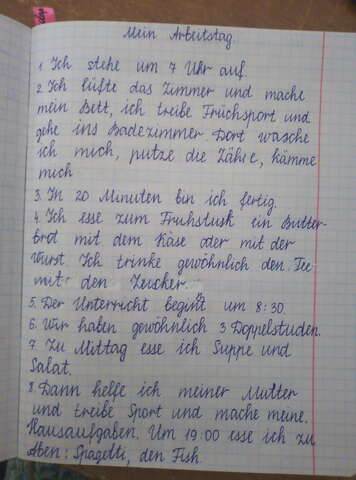 Mein Arbeitstag
1. Ich stehe um 7 Uhr auf.
2. Ich lüfte das Zimmer und mache
mein Bett, ich treibe Früchsport und
gehe ins Badezimmer. Dort wasche
ich mich, putze die Zähne, kämme
mich
3. In 20 Minuten bin ich fertig.
4. Ich esse zum Fruhstusk ein Butter-
brot mit dem Käse oder mit der
Wurst. Ich trinke gewöhnlich den Tee
mit den Zucker.
5. Der Unterricht begint um 8:30.
6. Wir haben gewöhnlich 3 Doppelstuden.
7. Zu Mittag esse ich Suppe und
Salat.
8. Dann helfe ich meiner Mutter
und treibe Sport und mache meine
Hausaufgaben. Um 19:00 esse ich zu
Aben: Spagetti, den Fish.